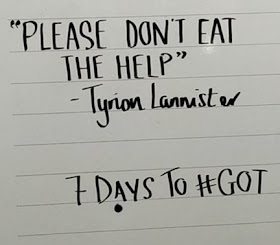 "PLEASE DON'T EAT
THE HELP"
- Tyrion Lannister
7 DAYS TO #GOT